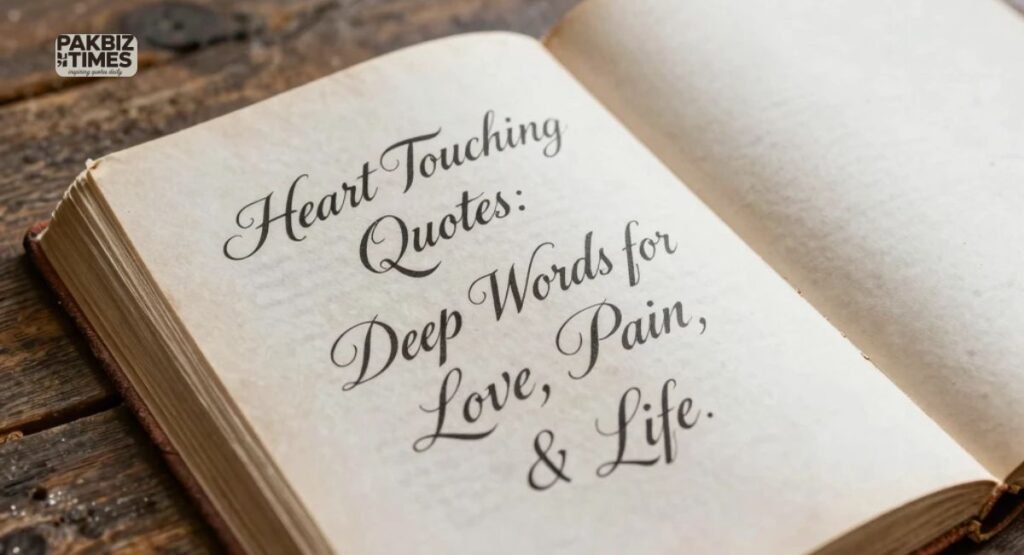 PAKBIZ
TIMES
inspiring quotes daily
Heart Touching
Quotes:
Deep Words for
Love, Pain,
& Life.